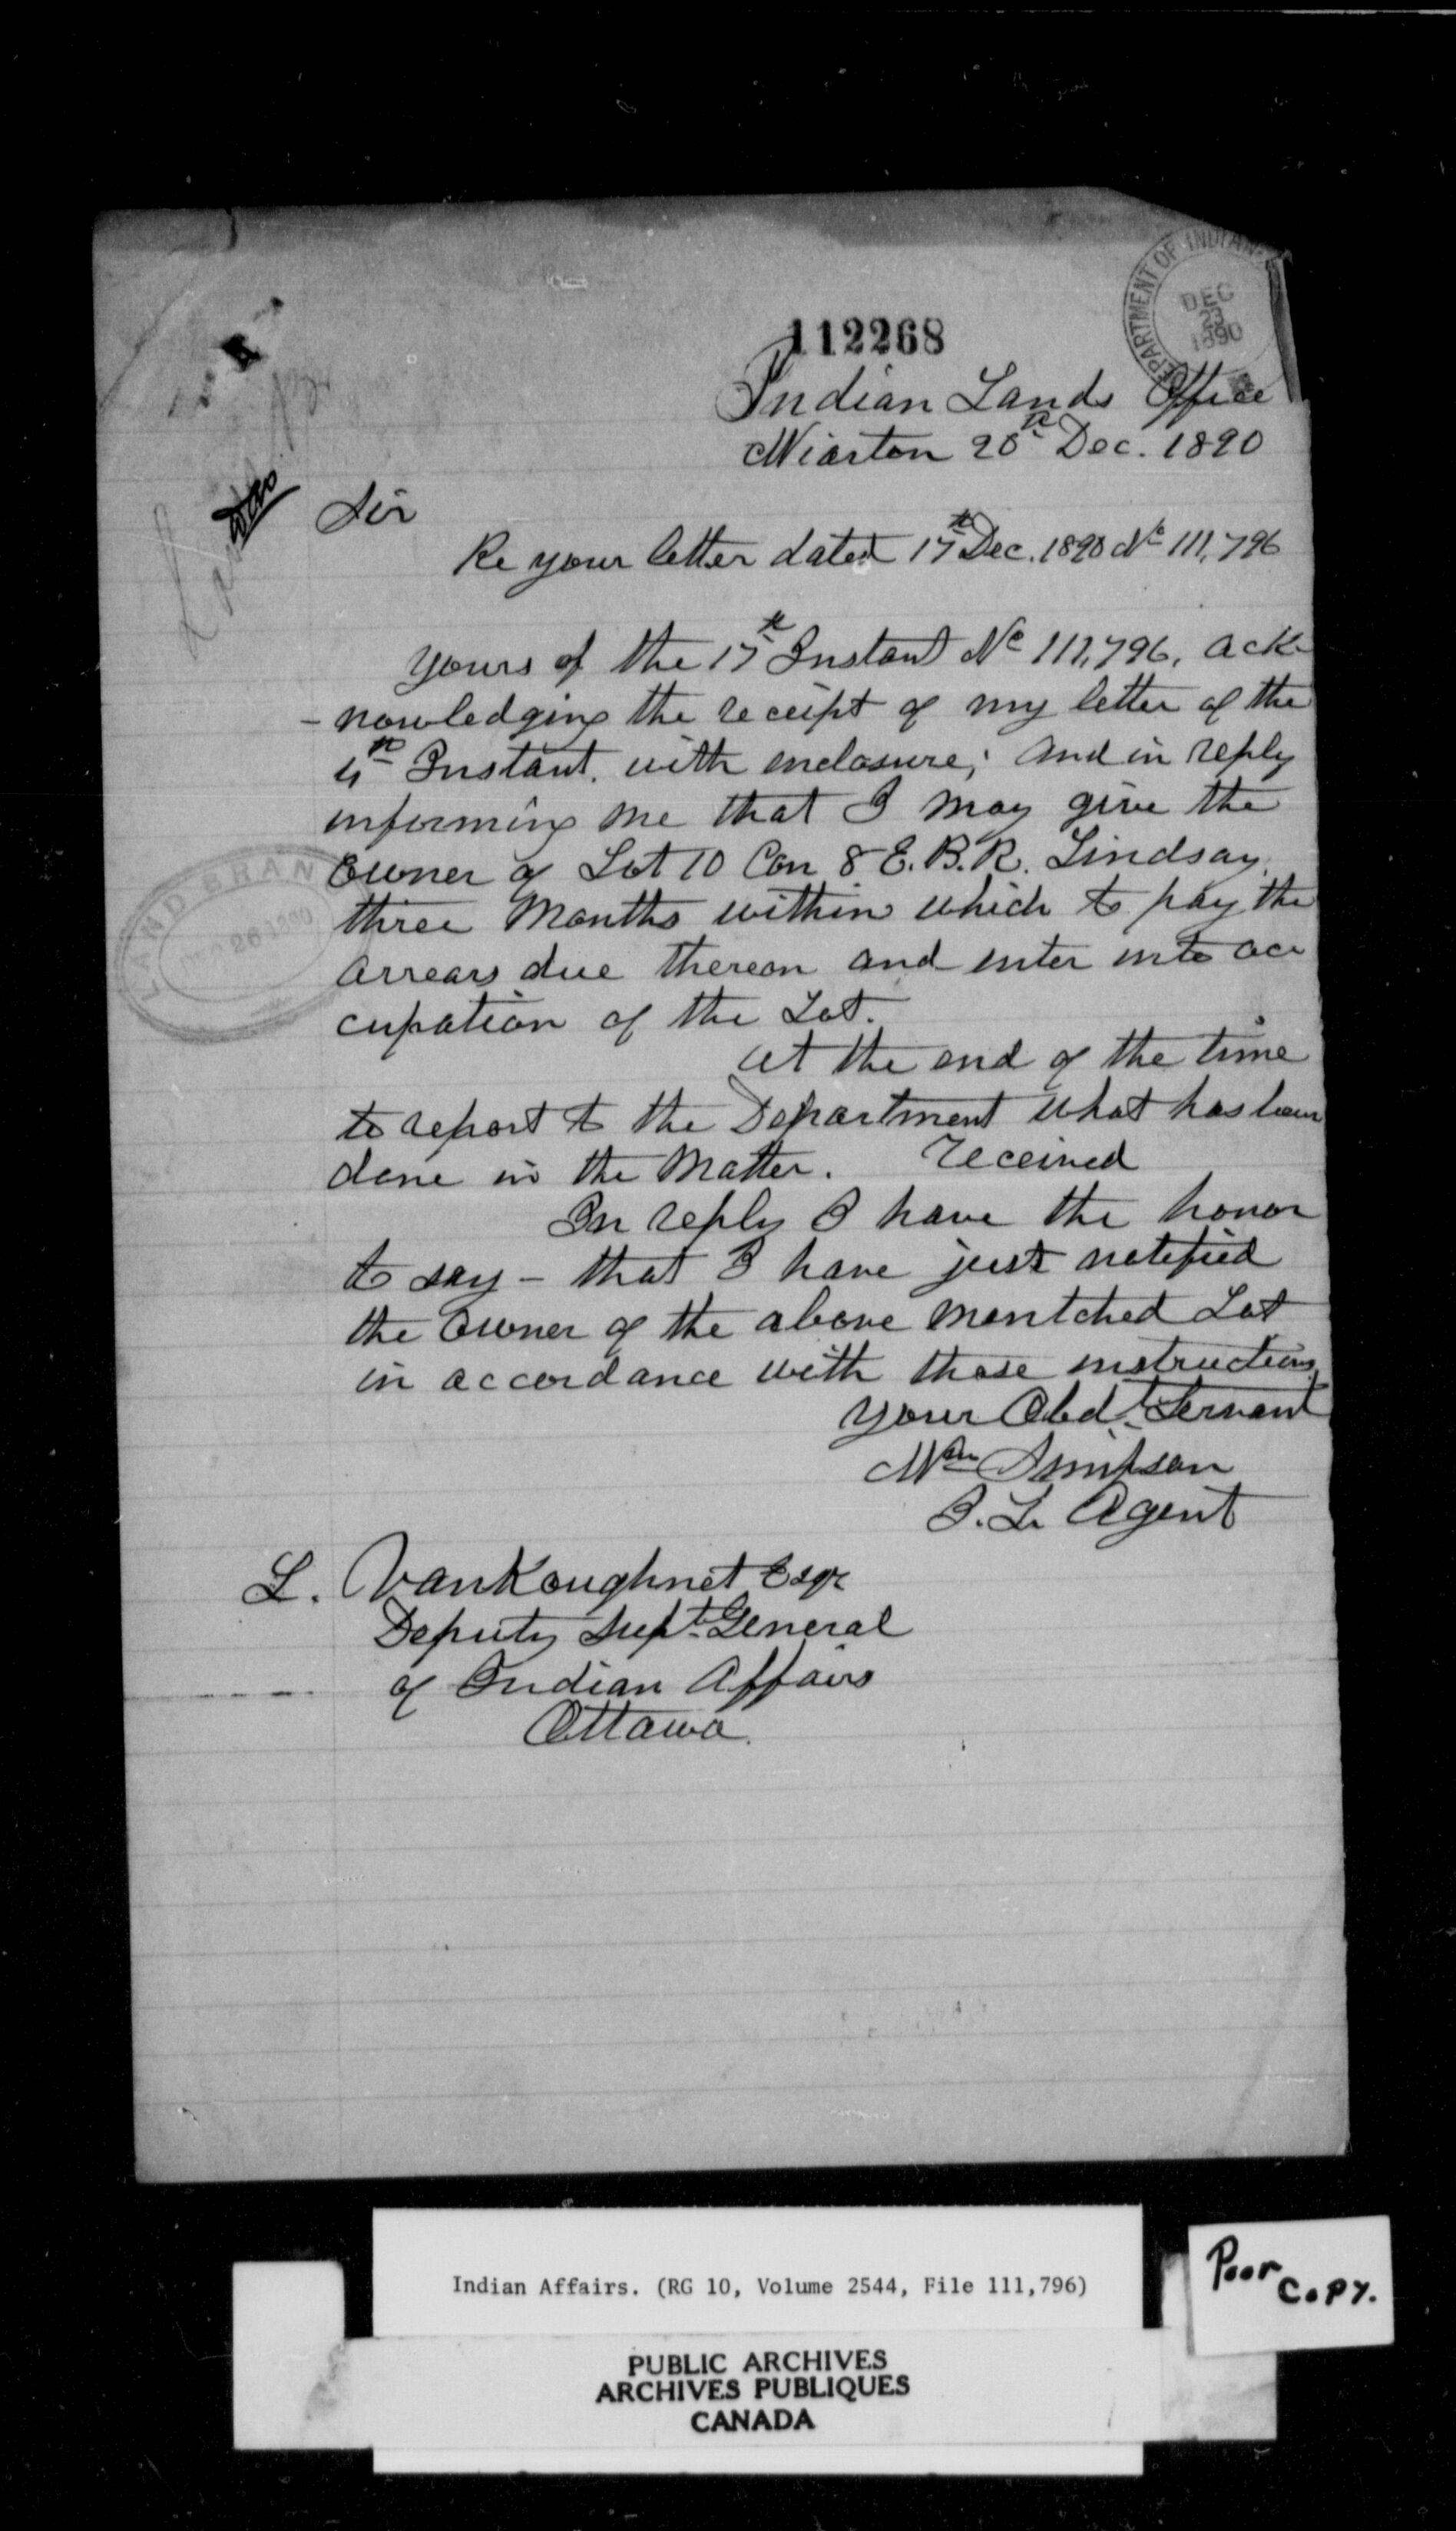 DEPARTMENT OF INDIAN
DEC
23
1890
112268
Indian Lands Office
Wiarton 20th Dec. 1890
Sir
Re your letter dated 17th Dec. 1890 No 111,796
yours of the 17th Instant No 111,796, ack-
-nowledging the receipt of my letter of the
4th Instant. with enclosure; and in reply
informing me that I may give the
Owner of Lot 10 Con 8 E.B.R. Lindsay,
three Months within which to pay the
arrears due thereon and enter into occ
cupation of the Lot.
LAND BRAN
26 1890
at the end of the time
to report to the Department what has been
done in the Matter. received
In reply I have the honor
to say - that I have just notified
the Owner of the above mentched Lot
in accordance with those instructions,
your Obdt. Servant
Wm Simpson
I. L. Agent
L. VanKoughnet Esqr
Deputy Supt. General
of Indian Affairs
Ottawa.
Indian Affairs. (RG 10, Volume 2544, File 111,796)
Poor
COPY.
PUBLIC ARCHIVES
ARCHIVES PUBLIQUES
CANADA